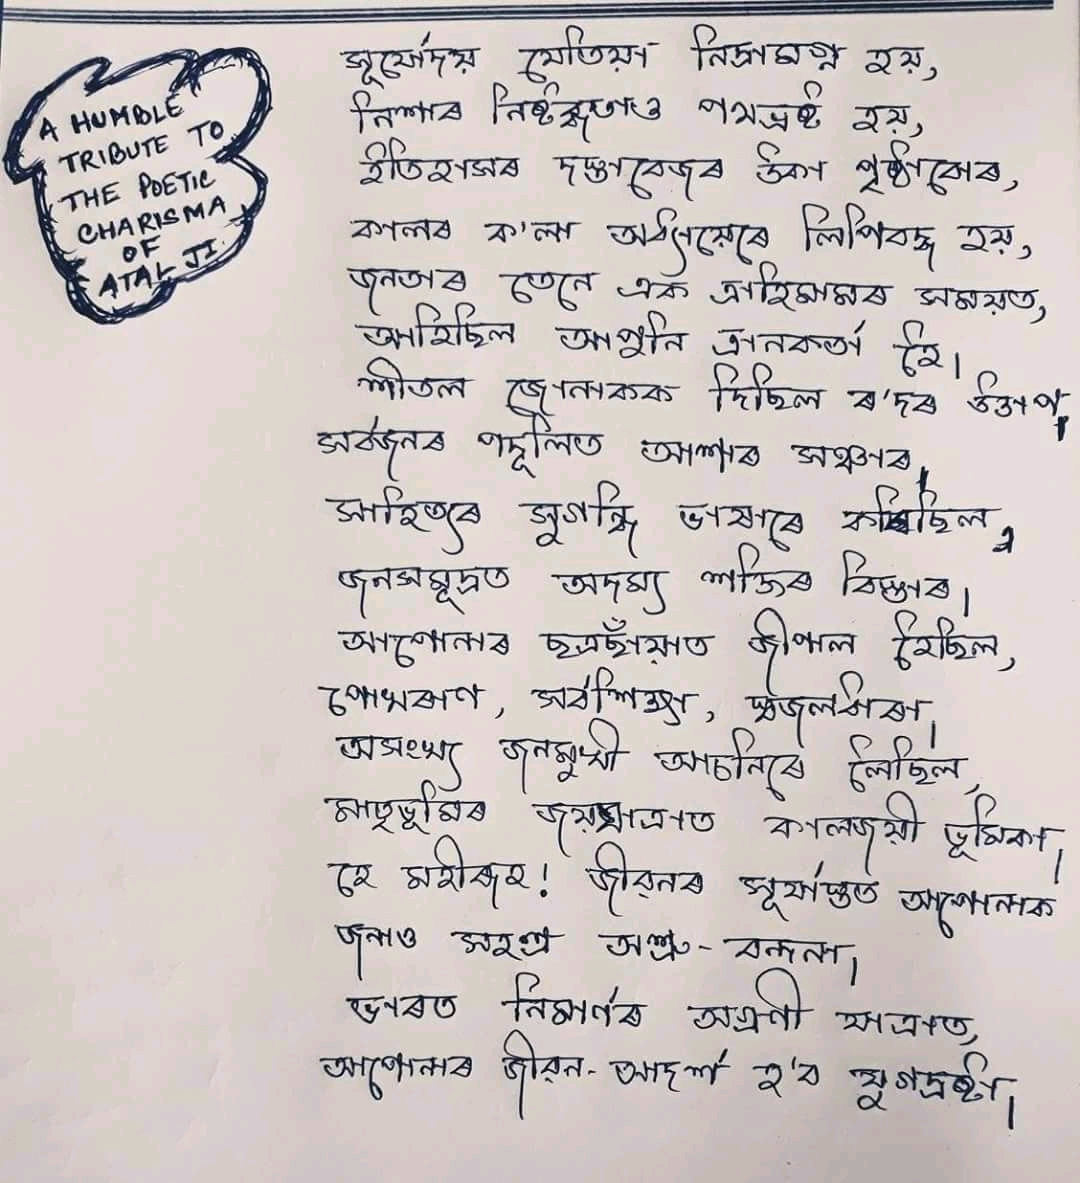 A HUMBLE
TRIBUTE TO
THE POETIC
CHARISMA
OF
ATAL JI
সূৰ্যোদয় যেতিয়া নিদ্ৰামগ্ন হয়,
নিশাৰ নিষ্টব্ধতাও পথভ্ৰষ্ট হয়,
ইতিহাসৰ দস্তাবেজৰ উকা পৃষ্ঠাবোৰ,
কালৰ ক'লা অধ্যায়েৰে লিপিবদ্ধ হয়,
জনতাৰ তেনে এক ত্ৰাহিমামৰ সময়ত,
আহিছিল আপুনি ত্ৰানকৰ্তা হৈ।
শীতল জোনাকক দিছিল ৰ'দৰ উত্তাপ,
সৰ্বজনৰ পদূলিত আশাৰ সঞ্চাৰ,
সাহিত্যৰে সুগন্ধি ভাষাৰে কৰিছিল,
জনসমূদ্ৰত অদম্য শক্তিৰ বিস্তাৰ।
আপোনাৰ ছত্ৰছাঁয়াত জীপাল হৈছিল,
পোখৰাণ, সৰ্বশিক্ষা, স্বজলধাৰা।
অসংখ্য জনমুখী আচনিৰে লৈছিল,
মাতৃভূমিৰ জয়যাত্ৰাত কালজয়ী ভূমিকা।
হে মহীৰূহ! জীৱনৰ সূৰ্যাস্তত আপোনাক
জনাও সহস্ৰ অশ্ৰু-বন্দনা।
ভাৰত নিৰ্মাণৰ অগ্ৰণী যাত্ৰাত,
আপোনাৰ জীৱন-আদৰ্শ হ'ব যুগদ্ৰষ্টা।